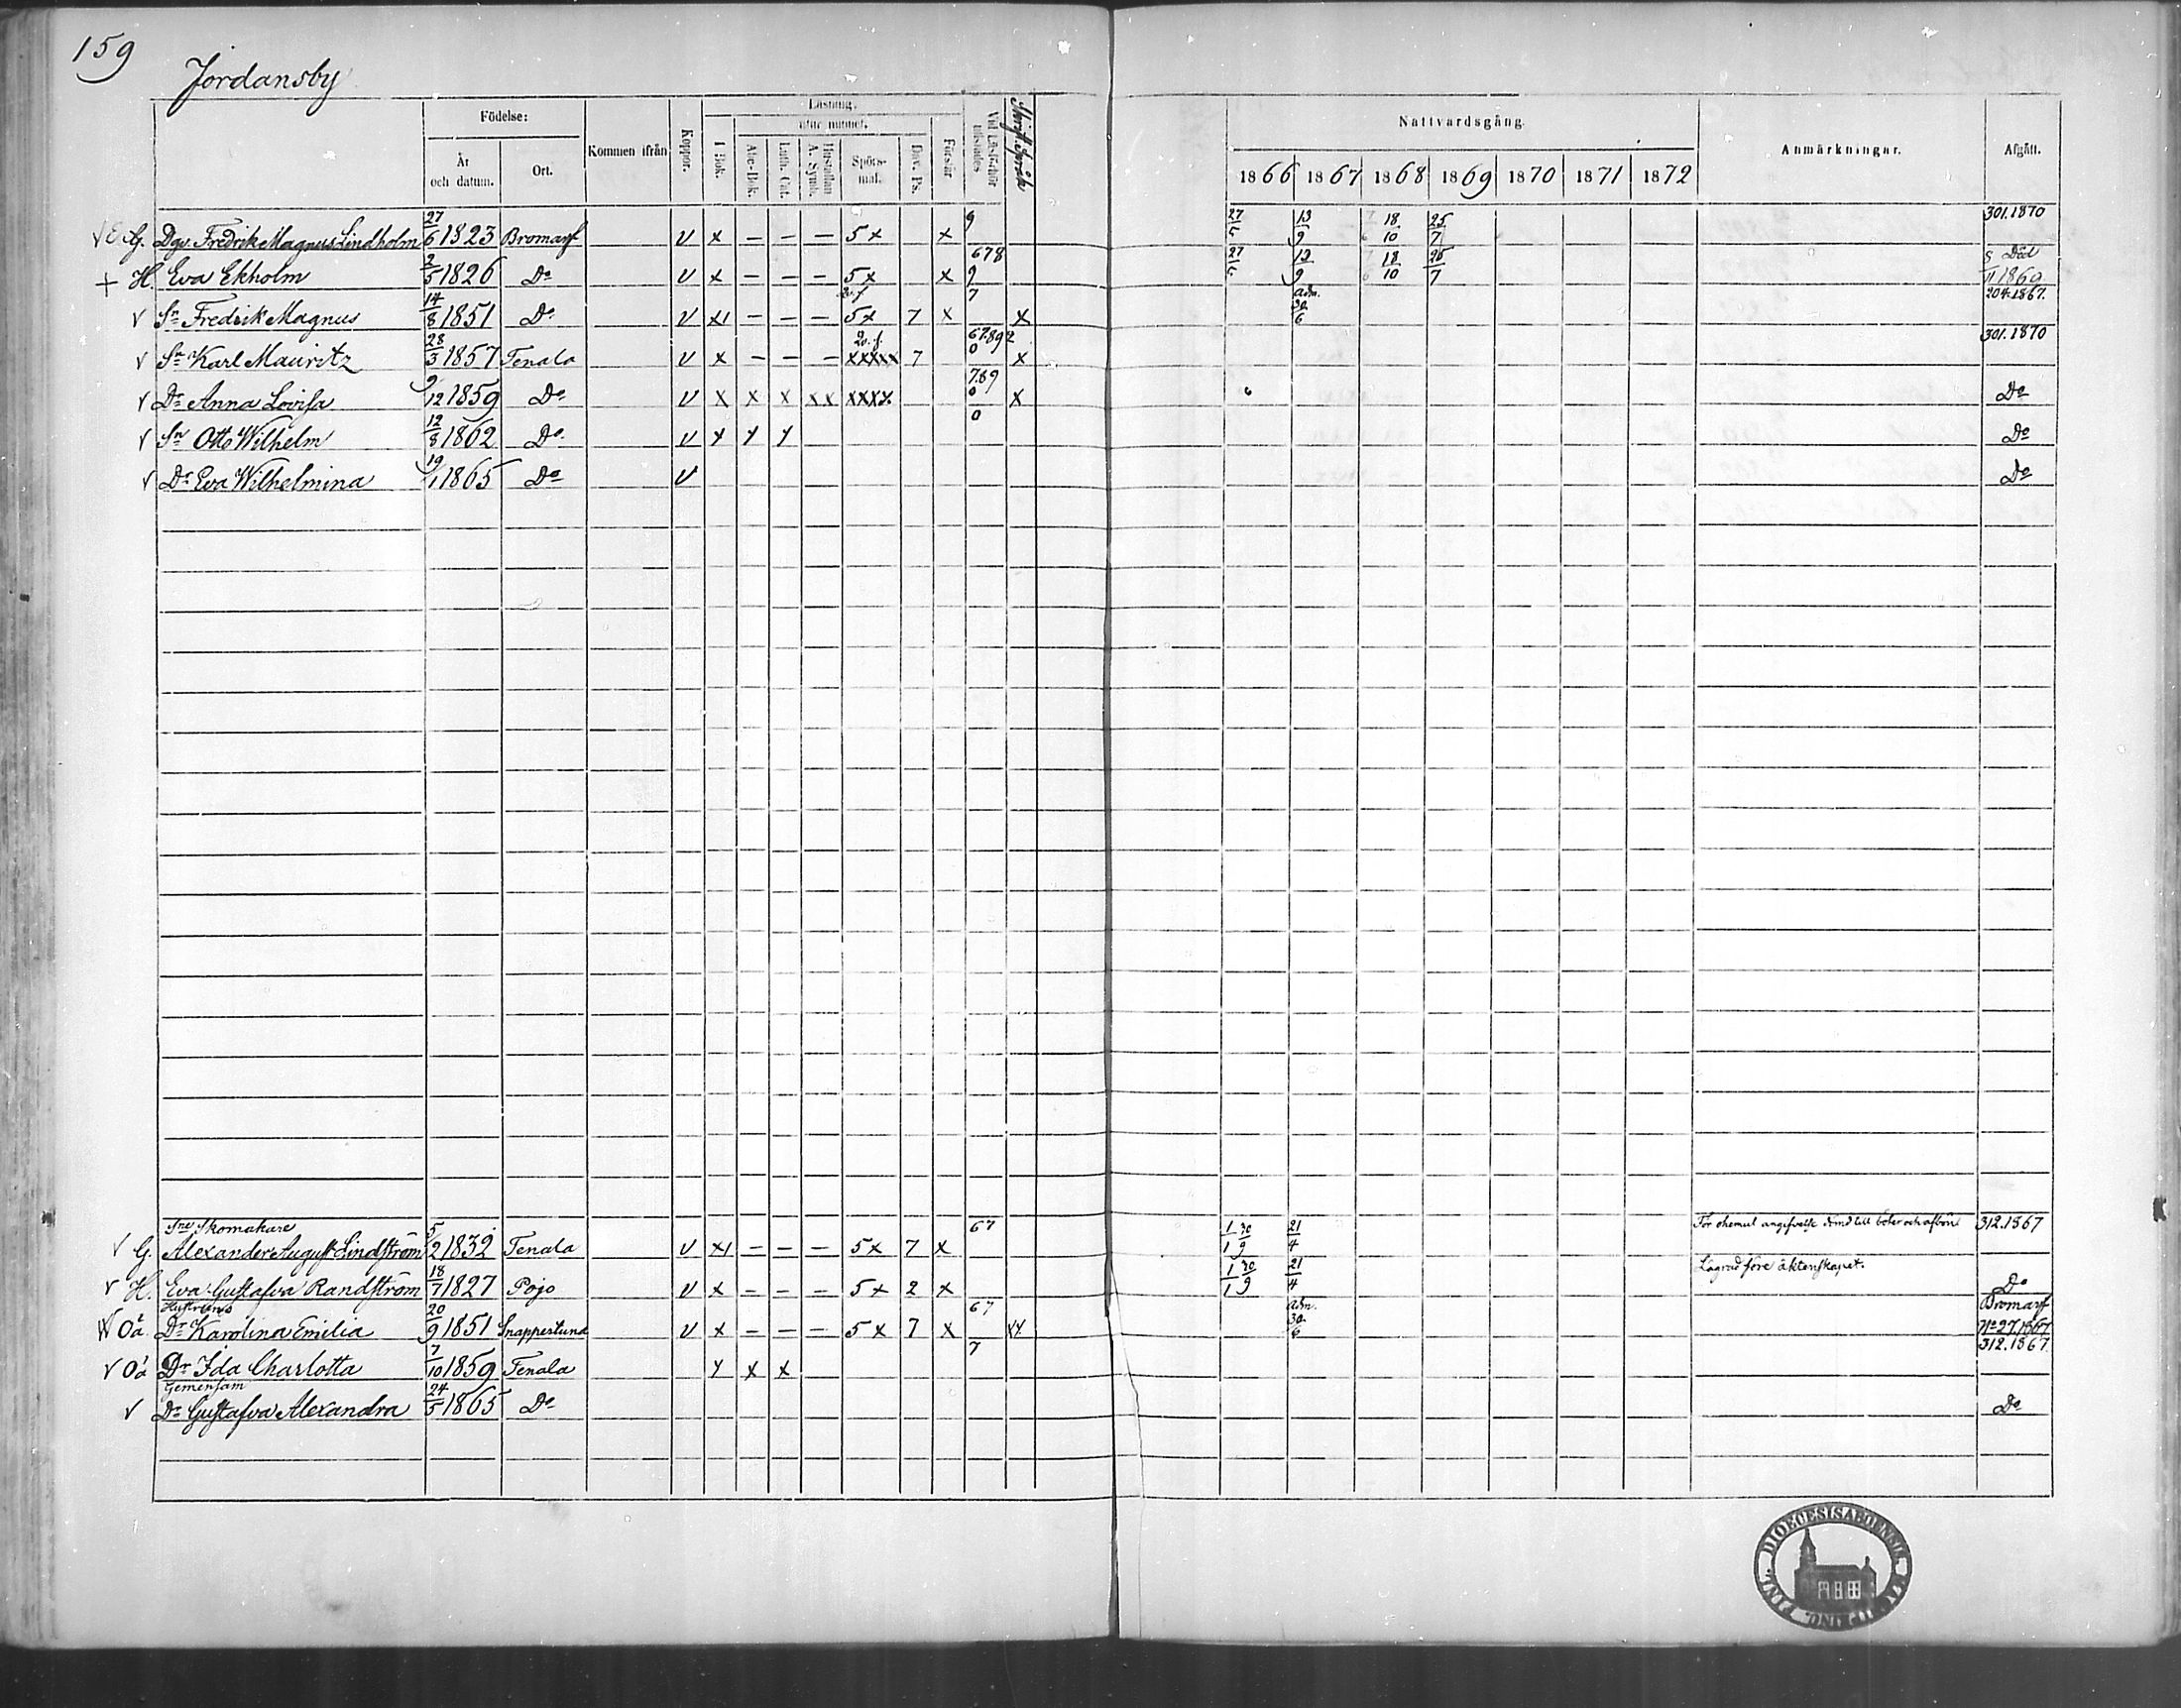 159
Jordansby
Födelse:
År och datum.
Ort.
Kommen ifrån
Koppor.
Läsning.
I Bok.
utur minnet.
Abc-Bok.
Luth. Cat.
Hustaflan A. Symb.
Spörsmål.
Dav. Ps.
Förstår
Vid Läsförhör tillstädes
Nattvardsgång.
1866 1867 1868 1869 1870 1871 1872
Anmärkningar.
Afgått.
G. Dgv. Fredrik Magnus Lindholm 27/6 1823 Bromarf v x — — — 5x x 9 27/5 13/9 18/10 25/7 301.1870
+ H. Eva Ekholm 2/5 1826 Do v x — — — 5x x 678 9 27/5 13/9 18/10 25/7 Död 1869
v Sn Fredrik Magnus 14/8 1851 Do v x1 — — — 5x 7 x 7 x adm. 30/6 204.1867.
v Sn Karl Mauritz 28/3 1857 Tenala v x — — — xxxxx 7 6789 0 x 301.1870
v Dr Anna Lovisa 9/12 1859 Do v x x x xx xxxx 789 0 x Do
v Sn Otto Wilhelm 12/8 1862 Do v x x x 0 Do
v Dr Eva Wilhelmina 19/1 1865 Do v Do
Sne Skomakare
v G. Alexander August Lindström 5/2 1832 Tenala v x1 — — — 5x 7 x 67 1/1 30/9 21/4 312.1867
v H. Eva Gustafva Randström 18/7 1827 Pojo v x — — — 5x 2 x 1/1 30/9 21/4 Lägrad före äktenskapet. Do
Hustruns
Oä Dr Karolina Emilia 20/9 1851 Snappertuna v x — — — 5x 7 x 67 xx adm. 30/6 Bromarf No 27.1867
v Oä Dr Ida Charlotta 7/10 1859 Tenala x x x 7 312.1867
Gemensam
v Dr Gustafva Alexandra 24/5 1865 Do Do